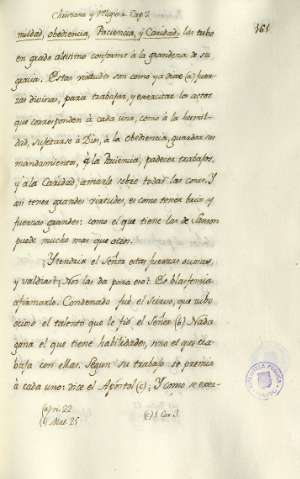 Christiana y Mistica Cap. 2.
161
mildad, obediencia, Paciencia, y Caridad, las tubo
en grado altisimo conforme à la grandeza de su
gracia. Estas virtudes son como ya dixe (a) fuer
zas divinas, para trabajar, y executar los actos
que corresponden à cada una, como à la humil-
dad, sujetarse à Dios, à la obediencia, guardar sus
mandamientos, y à la Paciencia, padecer trabajos,
y à la Caridad, amarle sobre todas las cosas. Y
asi tener grandes virtudes, es como tener brazos y
fuerzas grandes: como el que tiene las de Sanson
puede mucho mas que otro.
Y tendria el Señor estas fuerzas ociosas,
y valdias? Nos las dà para eso? Es blasfemia
afirmarlo. Condenado fue el siervo, que tubo
ocioso el talento que le fió el Señor (b) Nada
gana el que tiene habilidades, sino el que tra-
baja con ellas. Segun su trabajo se premia
à cada uno: dice el Apostol (c); Y como se
(a) n. 22
(b) Mat. 25
(c) 1 Cor. 3.